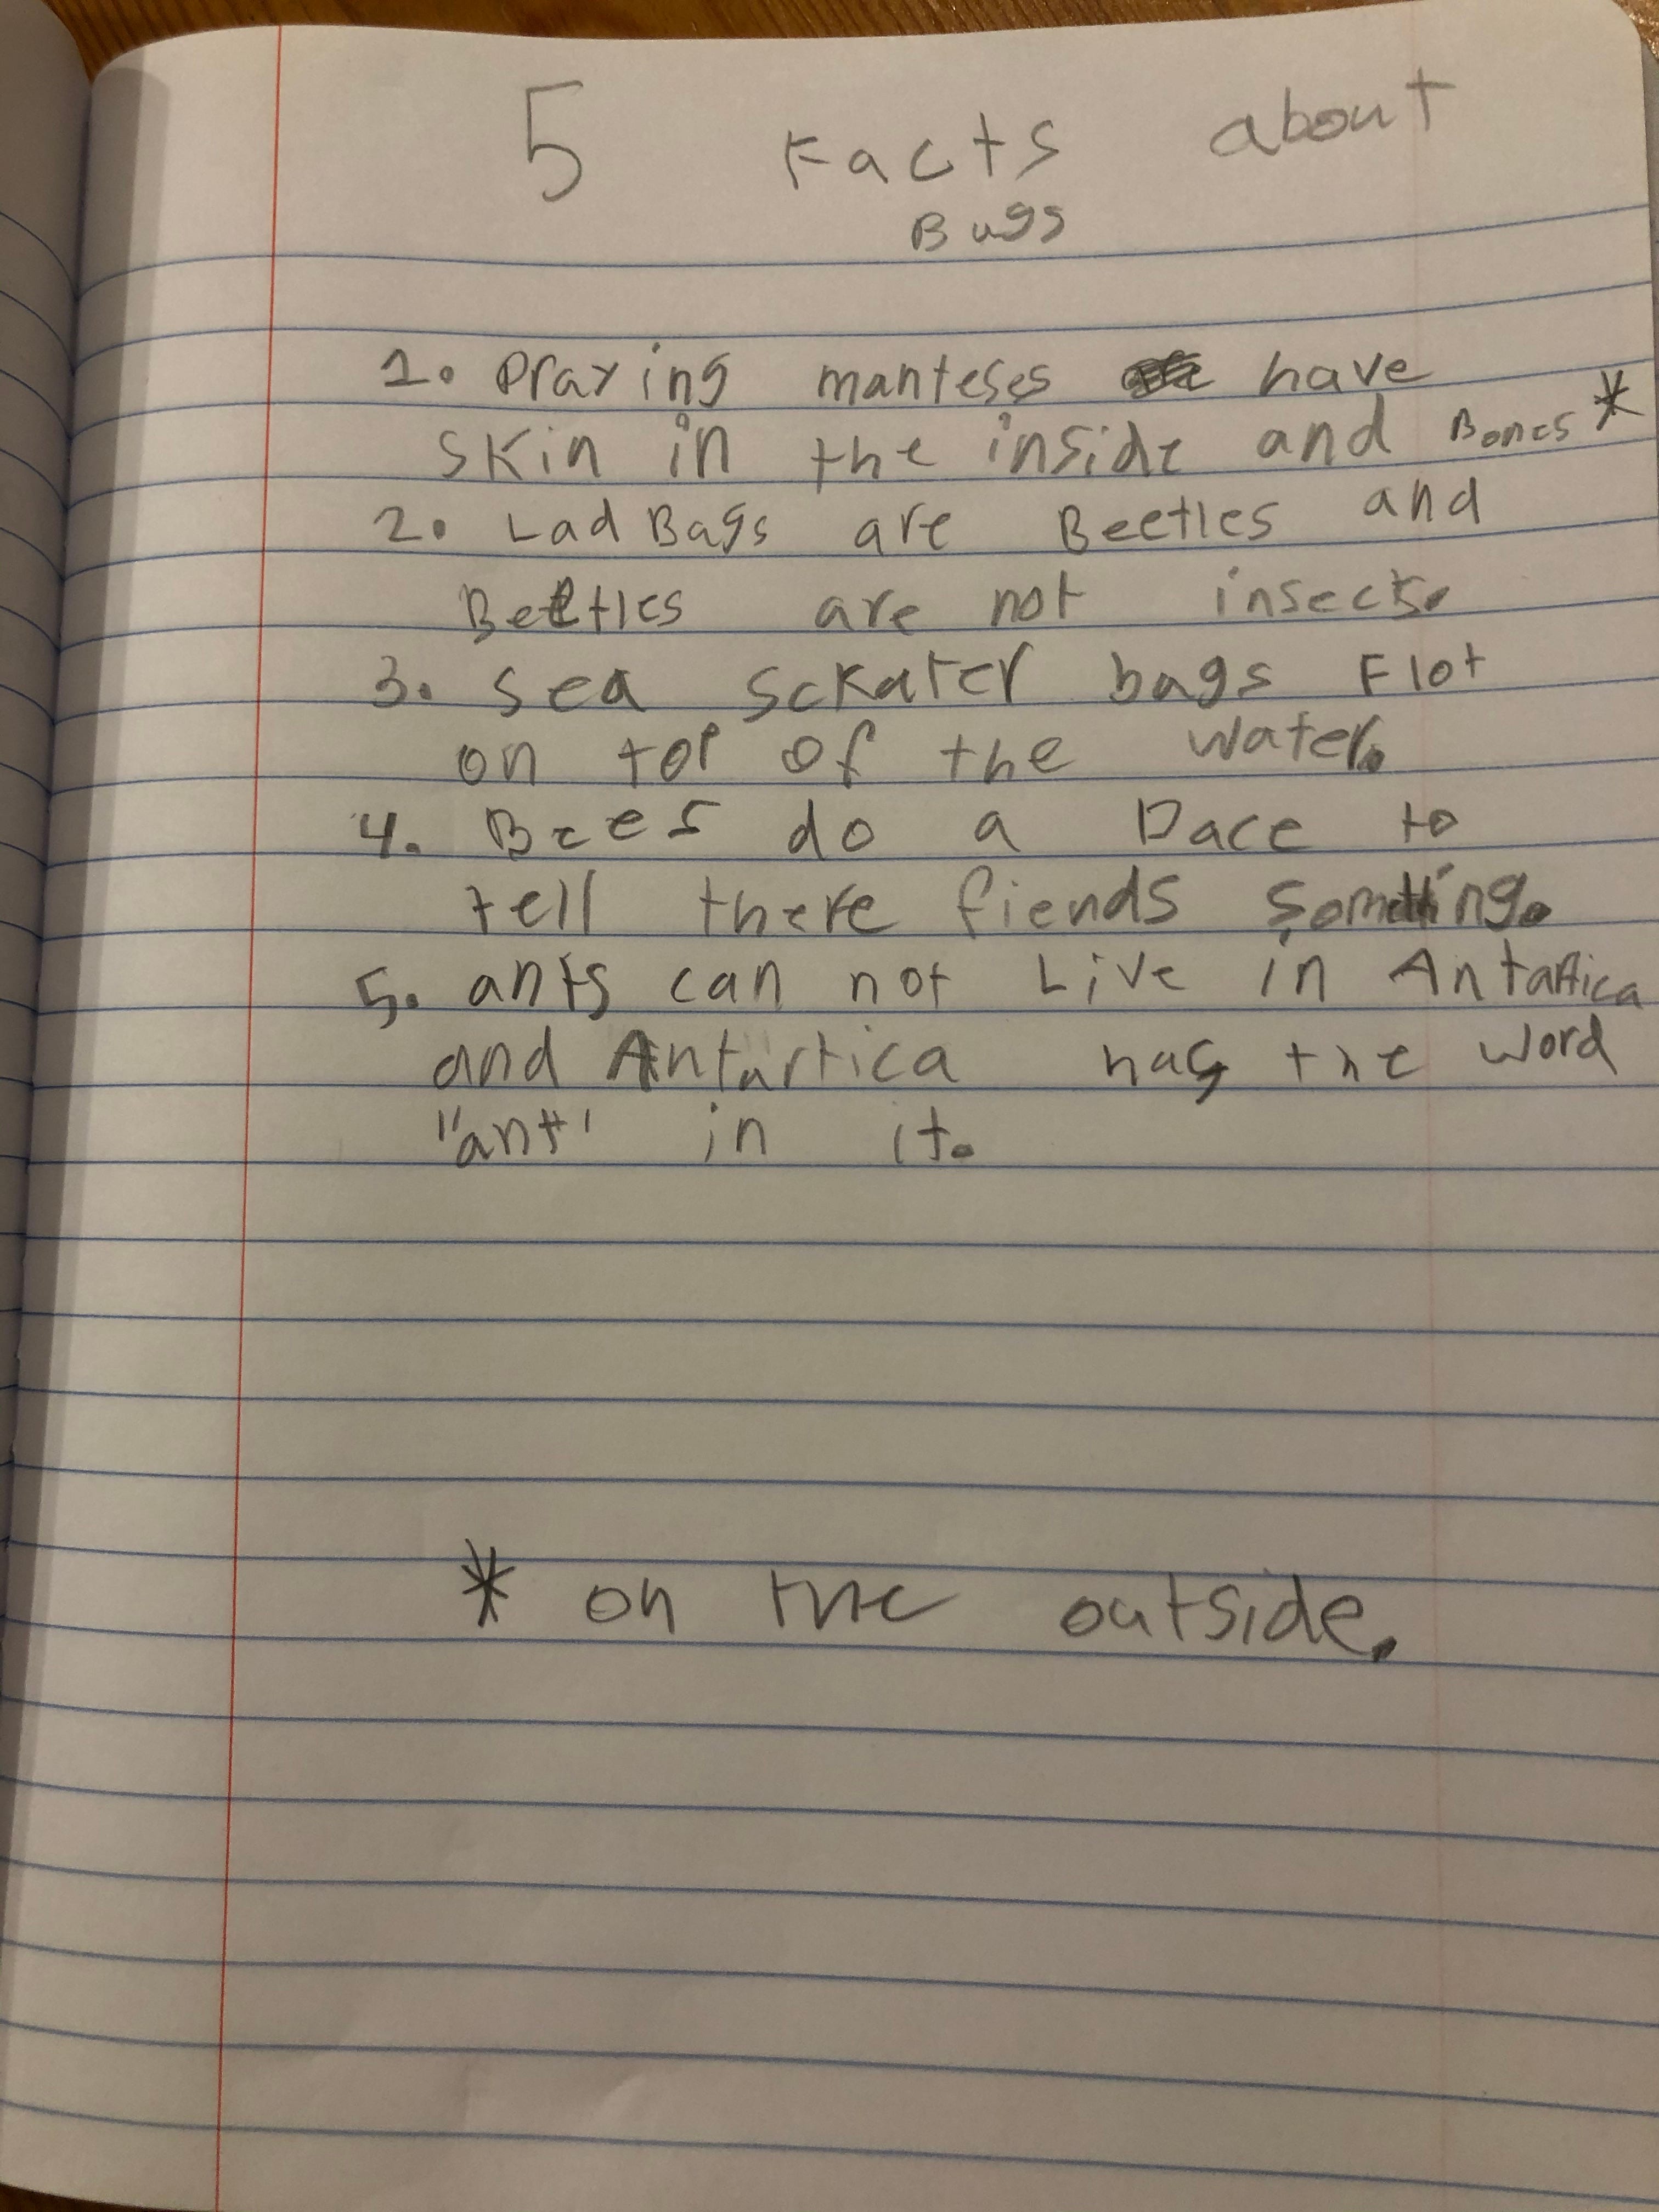 5 Facts about
Bugs
1. Praying manteses have
skin in the inside and Bones*
2. Lad Bugs are Beetles and
Beetles are not insects.
3. sea sckater bugs Flot
on top of the water.
4. Bees do a Dace to
tell there fiends something.
5. ants can not Live in Antartica
and Antartica has the word
"ant" in it.
* on the outside.